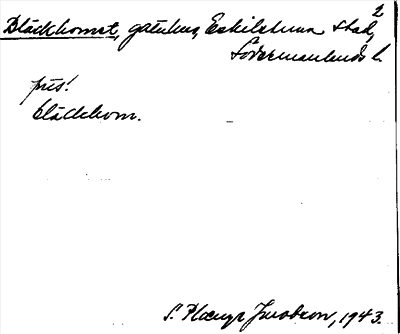 2
Bläckhornet, gatuhus, Eskilstuna stad,
Södermanlands l.
pris!
bläckhorn.
S. Plaenge Jacobson, 1943.